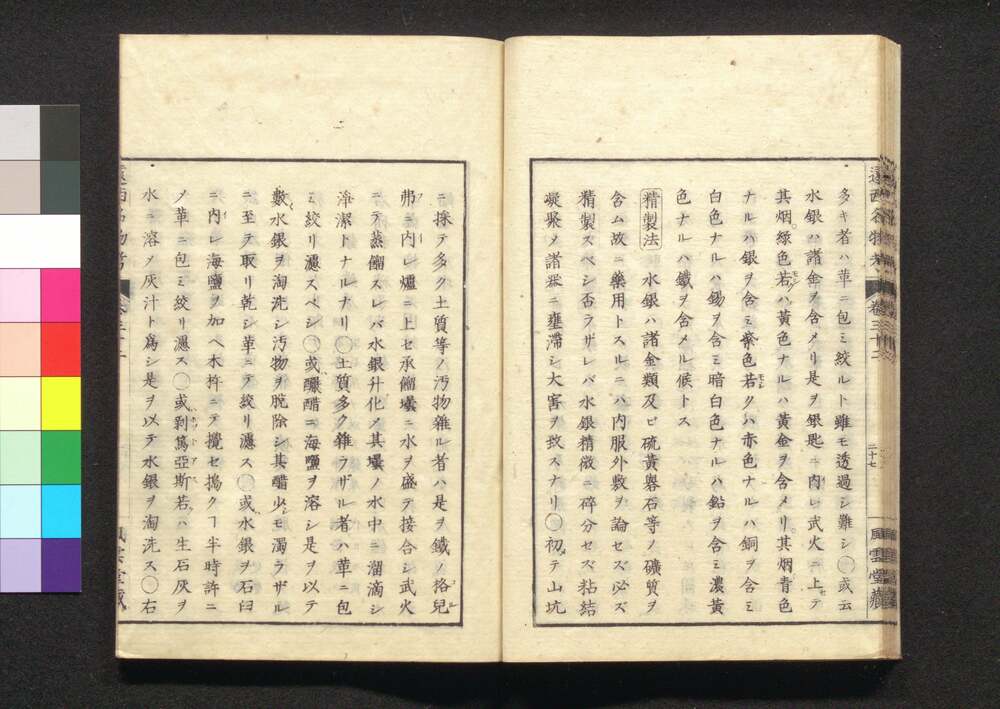 多キ者ハ革ニ包ミ絞ルト雖モ透過シ難シ〇或云
水銀ハ諸金ヲ含メリ是ヲ銀匙ニ内レ武火ニ上セテ
其烟緑色若クハ黄色ナルハ黄金ヲ含メリ其烟青色
ナルハ銀ヲ含ミ紫色若クハ赤色ナルハ銅ヲ含ミ
白色ナルハ錫ヲ含ミ暗白色ナルハ鉛ヲ含ミ濃黄
色ナルハ鐵ヲ含メル候トス
精製法 水銀ハ諸金類及ビ硫黄礜石等ノ礦質ヲ
含ム故ニ藥用トスルニハ内服外敷ヲ論セズ必ズ
精製スベシ否ラザレバ水銀精微ニ碎分セズ粘結
凝聚メ諸器ニ壅滯シ大害ヲ致スナリ〇初メテ山坑
遠西名物考 卷三十二 二十七 風雲堂藏
ニ採テ多ク土質等ノ汚物雜ル者ハ是ヲ鐵ノ格兒
弗ニ内レ爐ニ上セ承餾壜ニ水ヲ盛テ接合シ武火
ニテ蒸餾スレバ水銀升化メ其壜ノ水中ニ溜滴シ
淨潔トナルナリ〇土質多ク雜ラザル者ハ革ニ包
ミ絞リ濾スベシ〇或釅醋ニ海鹽ヲ溶シ是ヲ以テ
數水銀ヲ淘洗シ汚物ヲ脱除シ其醋少モ濁ラザル
ニ至テ取リ乾シ革ニテ絞リ濾ス〇或水銀ヲ石臼
ニ内レ海鹽ヲ加ヘ木杵ニテ攪セ搗クヿ半時許ニ
メ革ニ包ミ絞リ濾ス〇或剥篤亞斯若クハ生石灰ヲ
水ニ溶メ灰汁ト爲シ是ヲ以テ水銀ヲ淘洗ス〇右